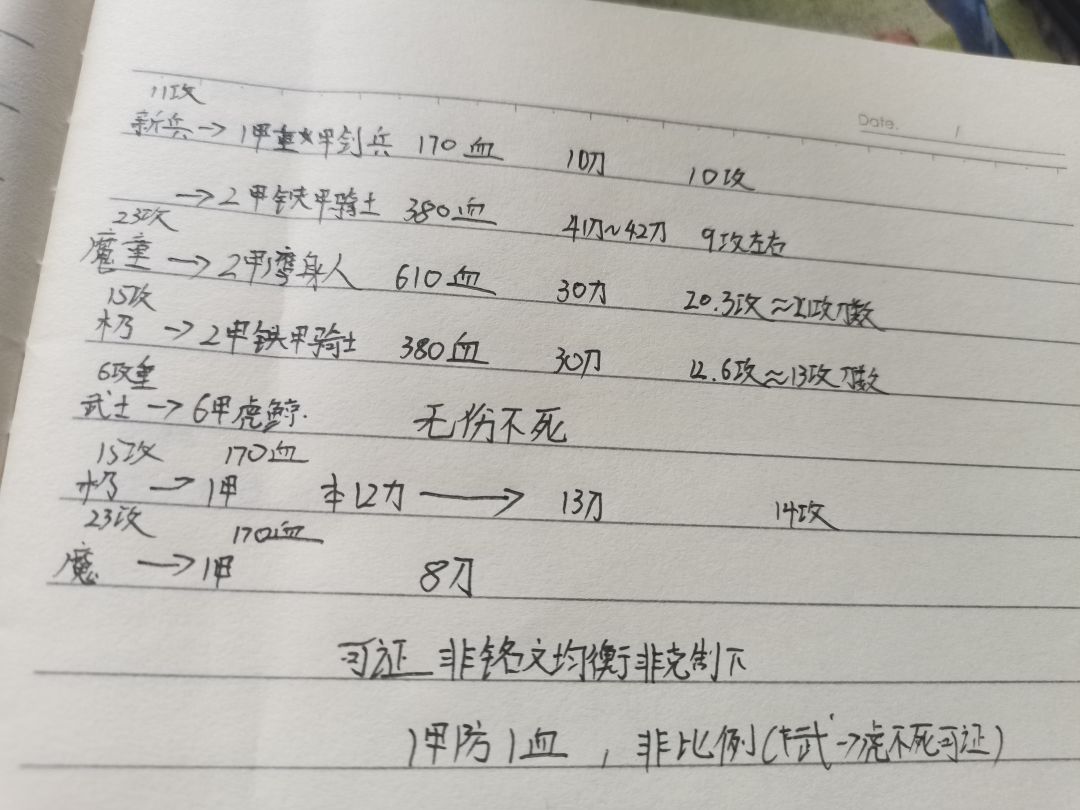 Date. /
11攻
新兵→1甲重甲剑兵 170血 10刀 10攻
→2甲铁甲骑士 380血 41刀~42刀 9攻左右
23攻
魔童→2甲湾鳄人 610血 30刀 20.3攻≈21攻刀数
15攻
→2甲铁甲骑士 380血 30刀 12.6攻≈13攻刀数
6攻重
武士→6甲虎鲸. 无伤不死
15攻 170血
→1甲 12刀→ 13刀 14攻
23攻 170血
魔→1甲 8刀
可证 非铭文均衡非克制下
1甲防1血,非比例(武→虎不死可证)